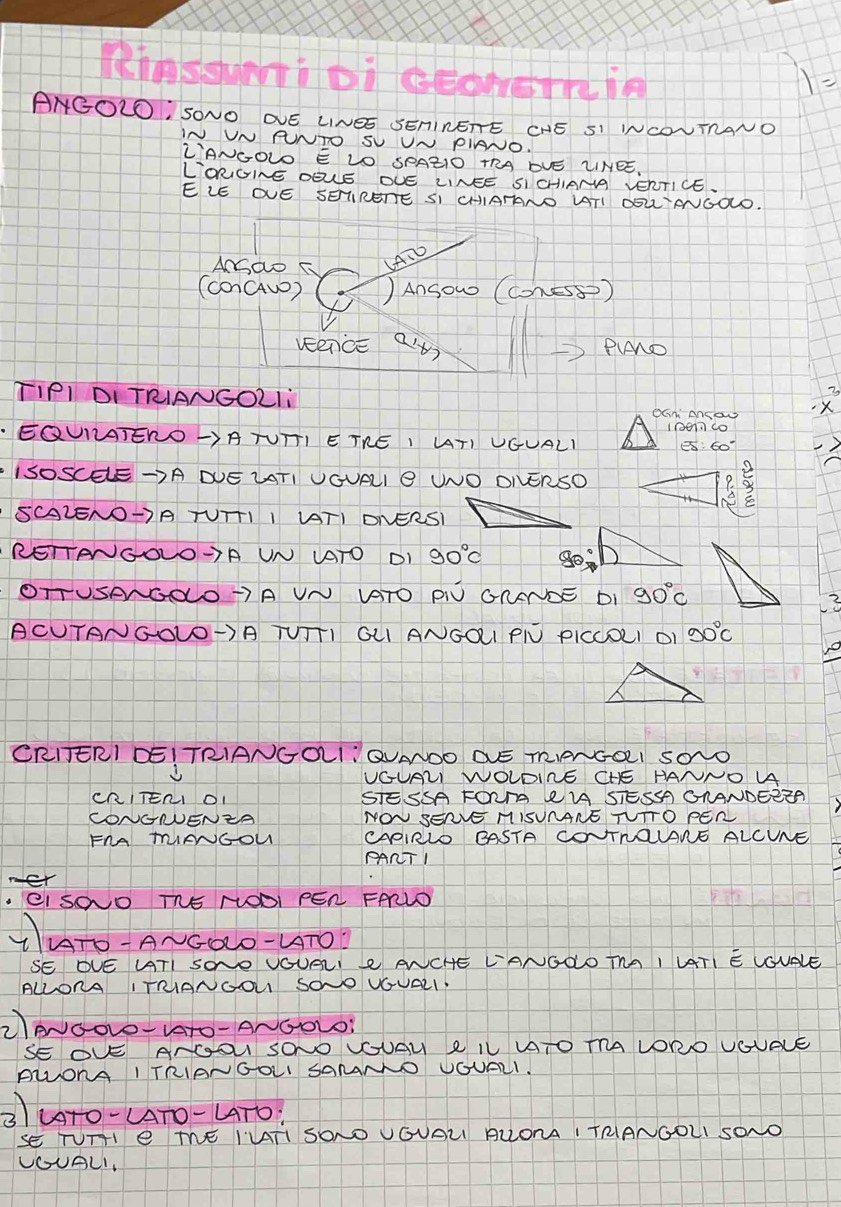 RIASSUNTI DI GEOMETRIA
ANGOLO: SONO DUE LINEE SEMIRETTE CHE SI INCONTRANO
IN UN PUNTO SU UN PIANO.
L'ANGOLO È LO SPAZIO TRA DUE LINEE.
L'ORIGINE DELLE DUE LINEE SI CHIAMA VERTICE.
E LE DUE SEMIRETTE SI CHIAMANO LATI DELL'ANGOLO.
LATO
ANGOLO
(CONCAVO)
ANGOLO (CONESSO)
VERTICE
LATO
→ PIANO
TIPI DI TRIANGOLI:
• EQUILATERO → A TUTTI E TRE I LATI UGUALI
OGNI ANGOLO
IDENTICO
ES: 60°
• ISOSCELE → A DUE LATI UGUALI E UNO DIVERSO
• SCALENO → A TUTTI I LATI DIVERSI
• RETTANGOLO → A UN LATO DI 90°C
90°
• OTTUSANGOLO → A UN LATO PIÙ GRANDE DI 90°C
ACUTANGOLO → A TUTTI GLI ANGOLI PIÙ PICCOLI DI 90°C
CRITERI DEI TRIANGOLI: QUANDO DUE TRIANGOLI SONO
UGUALI WOLDIRE CHE HANNO LA
STESSA FORMA E LA STESSA GRANDEZZA
NON SERVE MISURARE TUTTO PER
CAPIRLO BASTA CONTROLLARE ALCUNE
PARTI
↓
CRITERI DI
CONGRUENZA
FRA TRIANGOLI
• CI SONO TRE MODI PER FARLO
1) LATO-ANGOLO-LATO:
SE DUE LATI SONO UGUALI E ANCHE L'ANGOLO TRA I LATI È UGUALE
ALLORA I TRIANGOLI SONO UGUALI.
2) ANGOLO-LATO-ANGOLO:
SE DUE ANGOLI SONO UGUALI E IL LATO TRA LORO UGUALE
ALLORA I TRIANGOLI SARANNO UGUALI.
3) LATO-LATO-LATO:
SE TUTTI E TRE I LATI SONO UGUALI ALLORA I TRIANGOLI SONO
UGUALI.